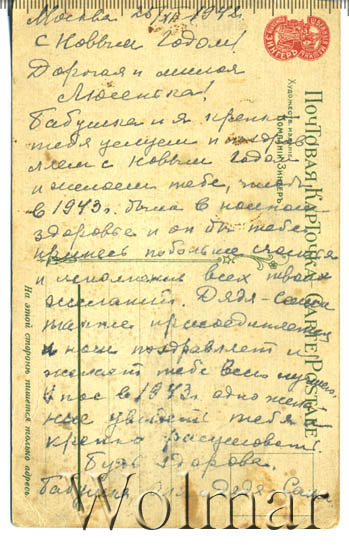 Москва 26/XII 1942г.
С Новым Годом!
Дорогая и милая
Люсенька!
Бабушка и я крепко
тебя целуем и поздрав
ляем с Новым Годом
и желаем тебе, чтобы
в 1943г. была в полном
здоровье и он бы тебе
принес побольше счастья
и исполнения всех твоих
желаний. Дядя-Саша
также присоединяется
к нам поздравляет и
желает тебе всего лучшего.
У нас в 1943г. одно жела-
ние увидеть тебя и
крепко расцеловать.
Будь здорова.
Бабушка и дядя Саша
ПОЧТОВАЯ КАРТОЧКА. CARTE POSTALE
Художеств. издание
Компаніи Зингеръ
На этой сторонѣ пишется только адресъ
Wolmar